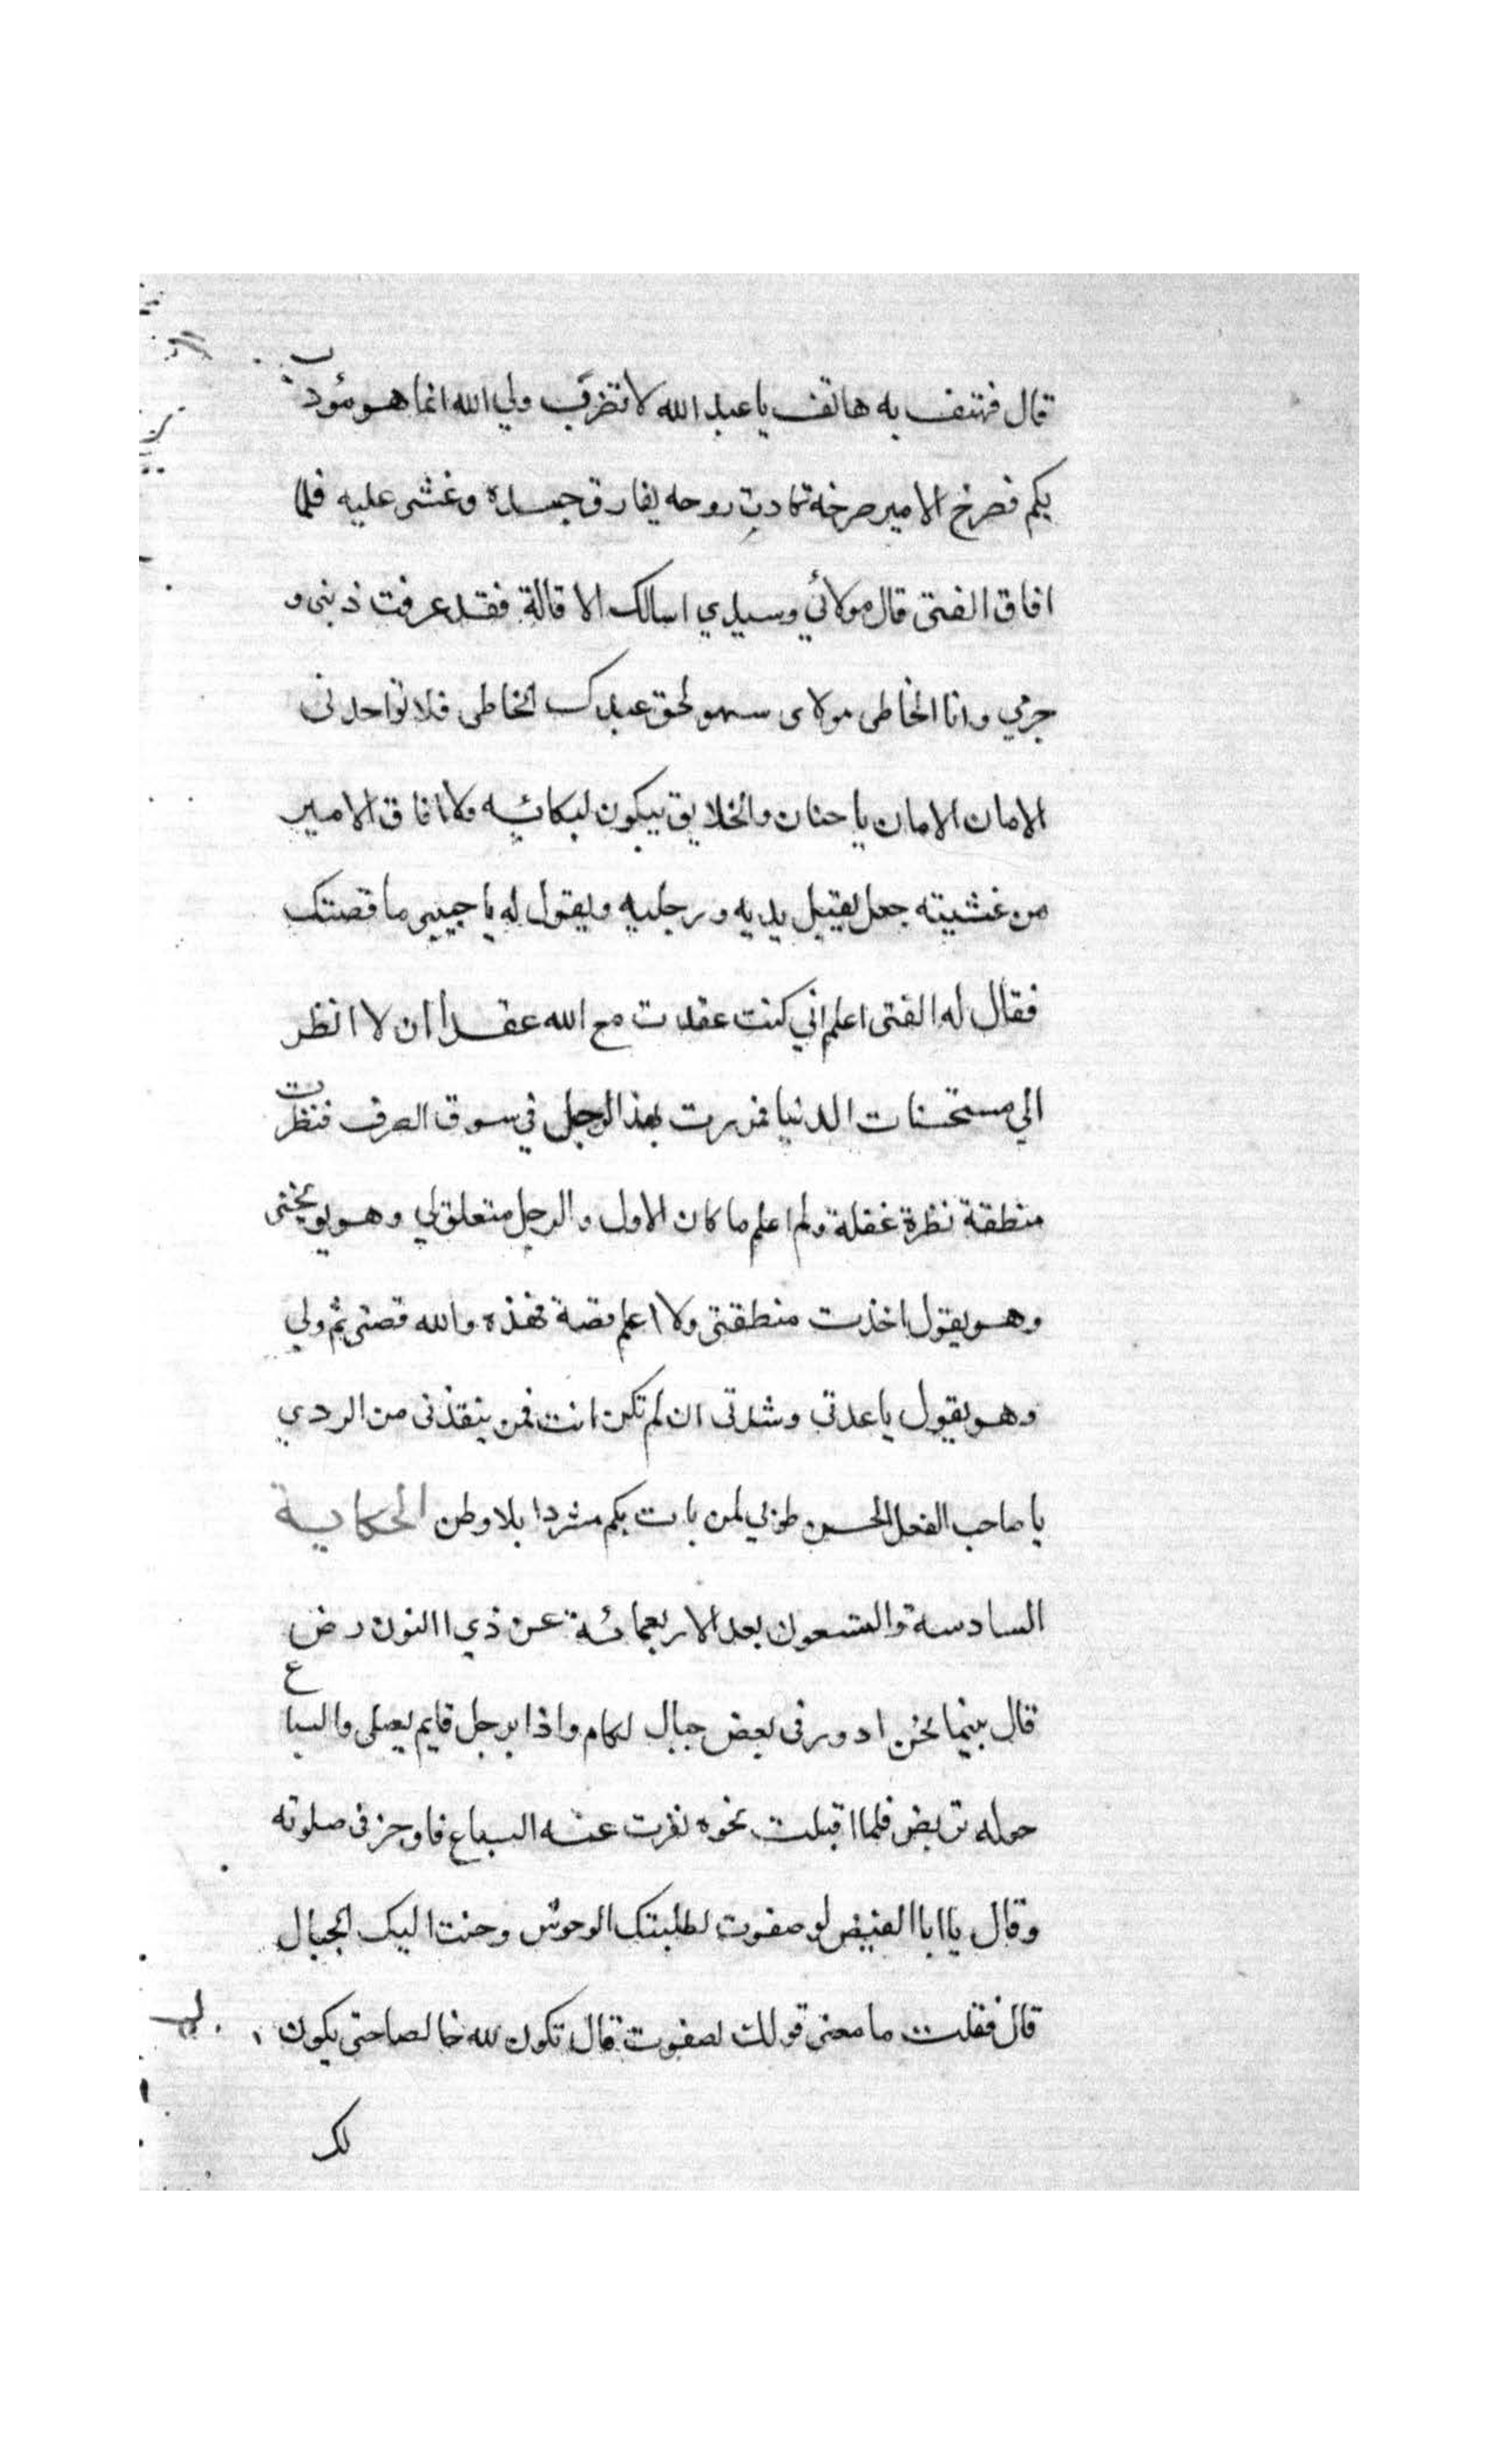 قال فهتف به هاتف يا عبد الله لا تضرب ولي الله انما هو مؤدب
بكم فصرخ الامير صرخة كادت روحه يفارق جسده وغشى عليه فلما
افاق الفتى قال مولائي وسيدي اسالك الاقالة فقد عرفت ذنبى و
جرمي وانا الخاطى مولاى سهو لحق عبدك الخاطى فلا تواخذنى
الامان الامان يا حنان والخلايق يبكون لبكائه ولما افاق الامير
من غشيته جعل يقبل يديه ورجليه ويقول له يا حبيبى ما قصتك
فقال له الفتى اعلم اني كنت عقدت مع الله عقدا ان لا انظر
الي مستحسنات الدنيا فمررت بهذا الرجل في سوق الصرف فنظرت
منطقة نظرة غفلة ولم اعلم ما كان الاول والرجل متعلق لي وهو يوبخنى
وهو يقول اخذت منطقتى ولا اعلم قصة فهذه والله قصتى ثم ولي
وهو يقول يا عدتى وشدتى ان لم تكن انت فمن ينقذنى من الردي
يا صاحب الفعل الحسن طوبي لمن بات بكم مشردا بلا وطن الحكاية
السادسة والتسعون بعد الاربعمائة عن ذي االنون رض
قال بينما نحن ادور فى بعض جبال لكام واذا برجل قايم يصلى والسباع
حوله تربض فلما اقبلت نحوه نفرت عنه السباع فاوجز فى صلوته
وقال يا ابا الفيض لو صفوت لطلبتك الوحوش وحنت اليك الجبال
قال فقلت ما معنى قولك لصفوت قال تكون لله خالصا حتى يكون
لك